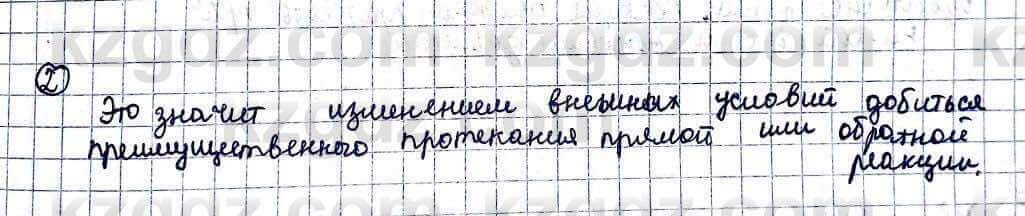 kzgdz.com kzgdz.com
②
Это значит изменением внешних условий добиться
преимущественного протекания прямой или обратной
реакции.
kzgdz.com